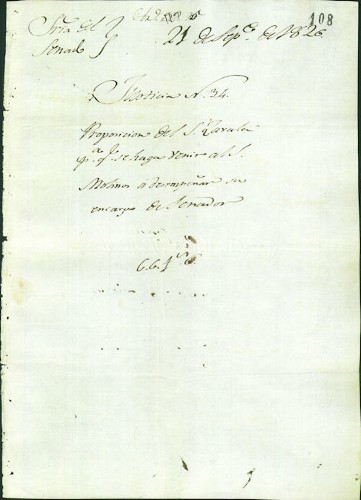 108
Sria del
Senado
21 de Sepe. de 1826
Justicia N. 34.
Proposicion del Sr. Zavala
pa. qe. se haga venir al S.
Molinos a desempeñar su
encargo de Senador